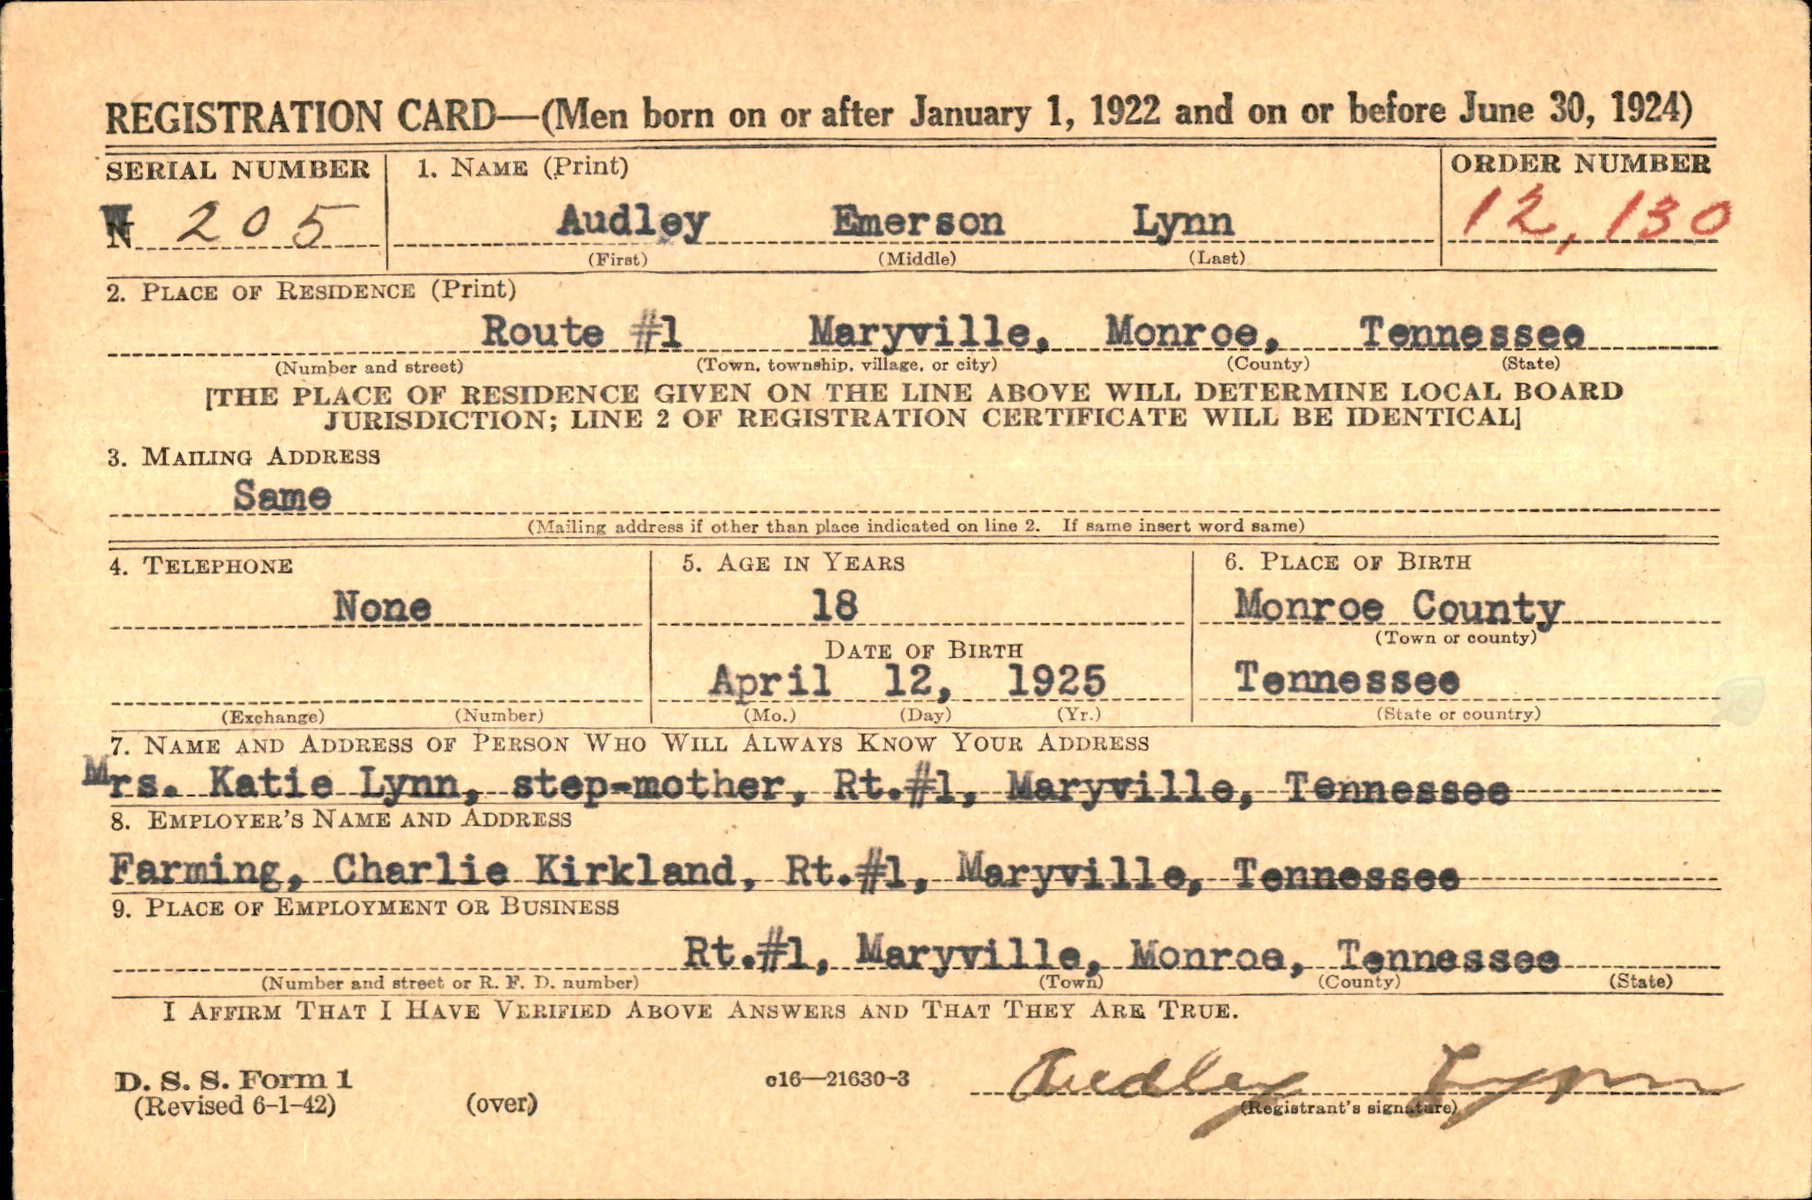 REGISTRATION CARD—(Men born on or after January 1, 1922 and on or before June 30, 1924)
SERIAL NUMBER 1. NAME (Print) ORDER NUMBER
N 205 Audley Emerson Lynn 12,130
(First) (Middle) (Last)
2. PLACE OF RESIDENCE (Print)
Route #1 Maryville, Monroe, Tennessee
(Number and street) (Town, township, village, or city) (County) (State)
[THE PLACE OF RESIDENCE GIVEN ON THE LINE ABOVE WILL DETERMINE LOCAL BOARD
JURISDICTION; LINE 2 OF REGISTRATION CERTIFICATE WILL BE IDENTICAL]
3. MAILING ADDRESS
Same
(Mailing address if other than place indicated on line 2. If same insert word same)
4. TELEPHONE 5. AGE IN YEARS 6. PLACE OF BIRTH
None 18 Monroe County
(Town or county)
DATE OF BIRTH
April 12, 1925 Tennessee
(Exchange) (Number) (Mo.) (Day) (Yr.) (State or country)
7. NAME AND ADDRESS OF PERSON WHO WILL ALWAYS KNOW YOUR ADDRESS
Mrs. Katie Lynn, step-mother, Rt.#1, Maryville, Tennessee
8. EMPLOYER'S NAME AND ADDRESS
Farming, Charlie Kirkland, Rt.#1, Maryville, Tennessee
9. PLACE OF EMPLOYMENT OR BUSINESS
Rt.#1, Maryville, Monroe, Tennessee
(Number and street or R. F. D. number) (Town) (County) (State)
I AFFIRM THAT I HAVE VERIFIED ABOVE ANSWERS AND THAT THEY ARE TRUE.
D. S. S. Form 1 c16—21630-3 Audley Lynn
(Revised 6-1-42) (over) (Registrant's signature)